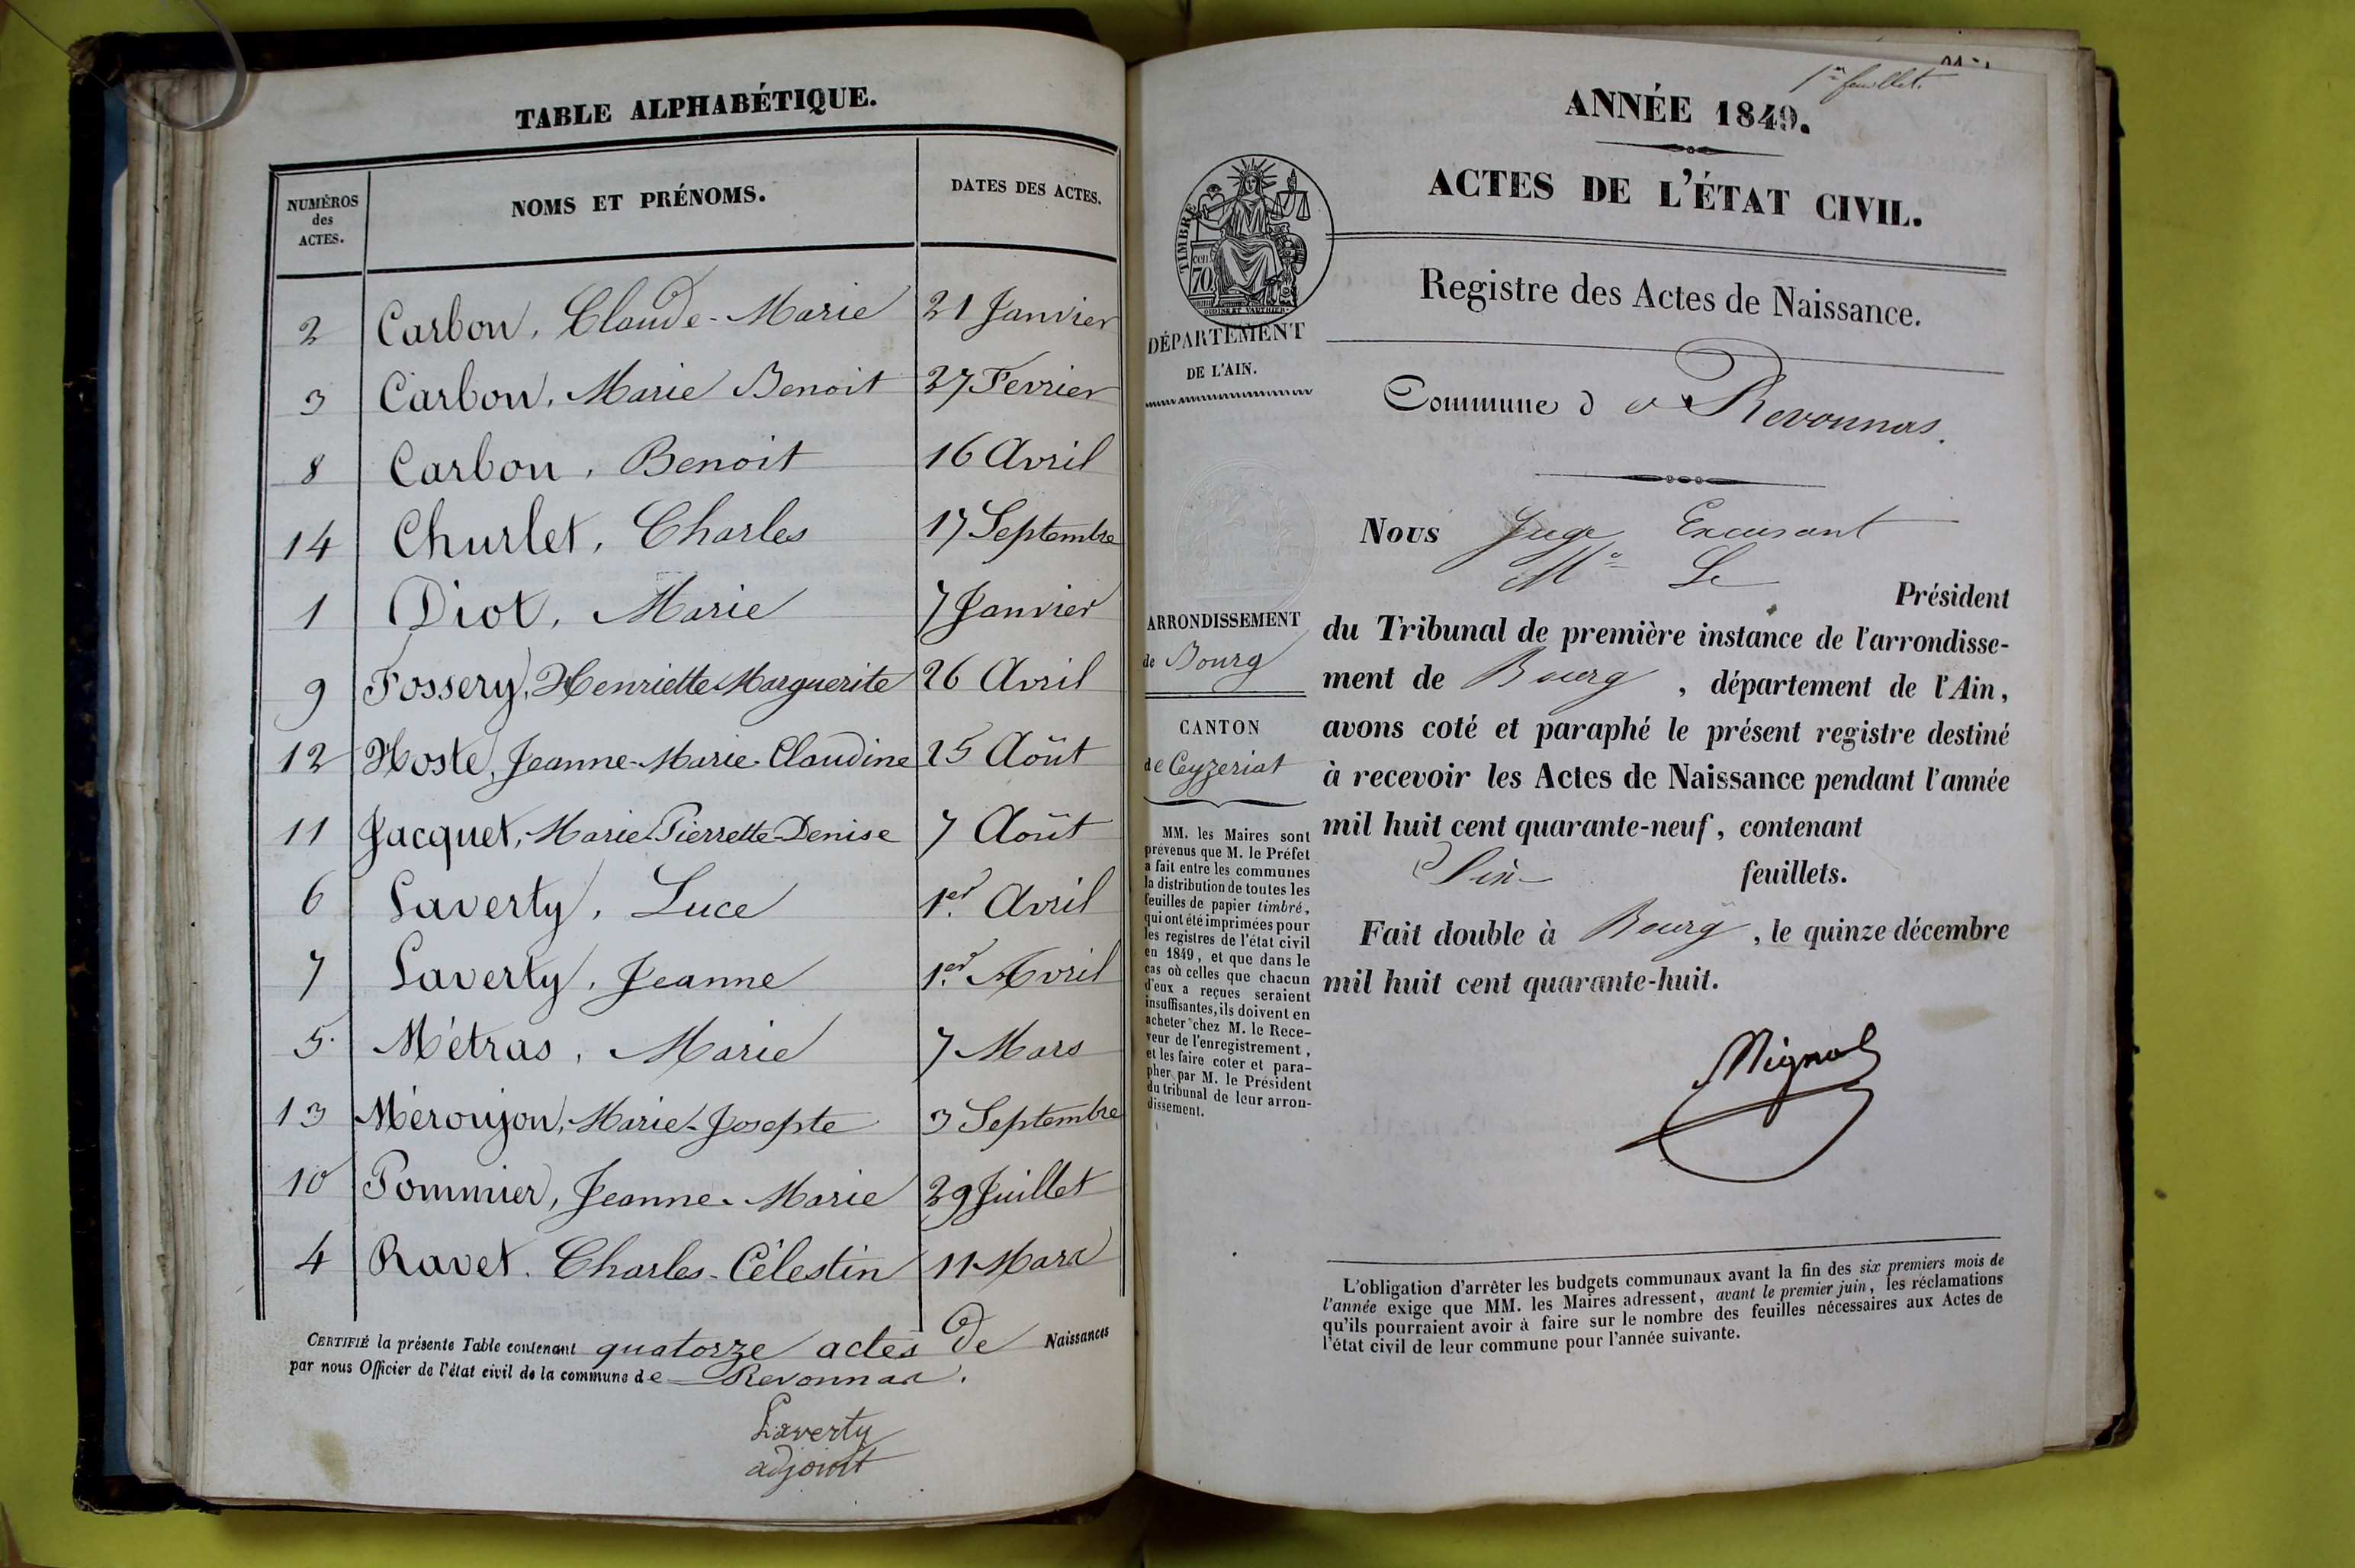 TABLE ALPHABÉTIQUE.
NUMÉROS des ACTES. NOMS ET PRÉNOMS. DATES DES ACTES.
2 Carbon, Claude-Marie 21 Janvier
3 Carbon, Marie Benoit 27 Fevrier
8 Carbon, Benoit 16 Avril
14 Churlet, Charles 17 Septembre
1 Diot, Marie 7 Janvier
9 Fossery, Henriette Marguerite 26 Avril
12 Hoste, Jeanne-Marie-Claudine 25 Août
11 Jacquet, Marie-Pierrette-Denise 7 Août
6 Laverty, Luce 1er. Avril
7 Laverty, Jeanne 1er. Avril
5. Métras, Marie 7 Mars
13 Méroujon, Marie-Josepte 3 Septembre
10 Pommier, Jeanne-Marie 29 Juillet
4 Ravet. Charles-Célestin 11 Mars
CERTIFIÉ la présente Table contenant quatorze actes de Naissances
par nous Officier de l'état civil de la commune de Revonnas.
Laverty
adjoint
1er feuillet.
ANNÉE 1849.
ACTES DE L'ÉTAT CIVIL.
Registre des Actes de Naissance.
TIMBRE
70 cen.
DÉPARTEMENT
DE L'AIN.
Commune de Revonnas.
Nous Juge
Mr Le
Président
du Tribunal de première instance de l'arrondisse-
ment de Bourg, département de l'Ain,
avons coté et paraphé le présent registre destiné
à recevoir les Actes de Naissance pendant l'année
mil huit cent quarante-neuf, contenant
feuillets.
Fait double à Bourg, le quinze décembre
mil huit cent quarante-huit.
ARRONDISSEMENT
de Bourg
CANTON
de Ceyzeriat
MM. les Maires sont
prévenus que M. le Préfet
a fait entre les communes
la distribution de toutes les
feuilles de papier timbré,
qui ont été imprimées pour
les registres de l'état civil
en 1849, et que dans le
cas où celles que chacun
d'eux a reçues seraient
insuffisantes, ils doivent en
acheter chez M. le Rece-
veur de l'enregistrement,
et les faire coter et para-
pher par M. le Président
du tribunal de leur arron-
dissement.
L'obligation d'arrêter les budgets communaux avant la fin des six premiers mois de
l'année exige que MM. les Maires adressent, avant le premier juin, les réclamations
qu'ils pourraient avoir à faire sur le nombre des feuilles nécessaires aux Actes de
l'état civil de leur commune pour l'année suivante.